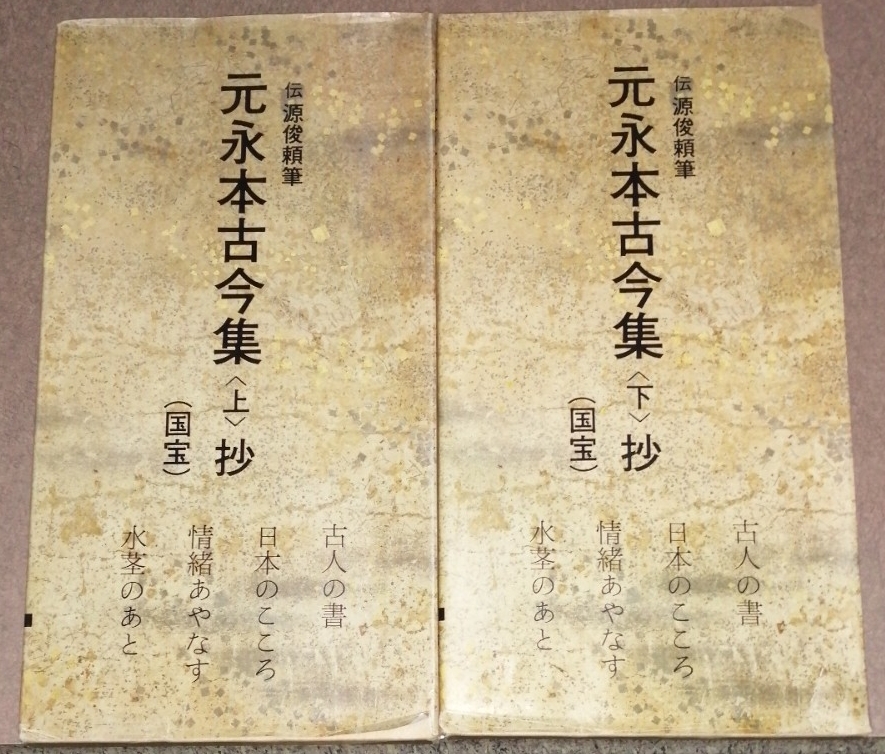 伝 源俊頼筆
元永本古今集〈上〉抄
（国宝）
古人の書
日本のこころ
情緒あやなす
水茎のあと
伝 源俊頼筆
元永本古今集〈下〉抄
（国宝）
古人の書
日本のこころ
情緒あやなす
水茎のあと